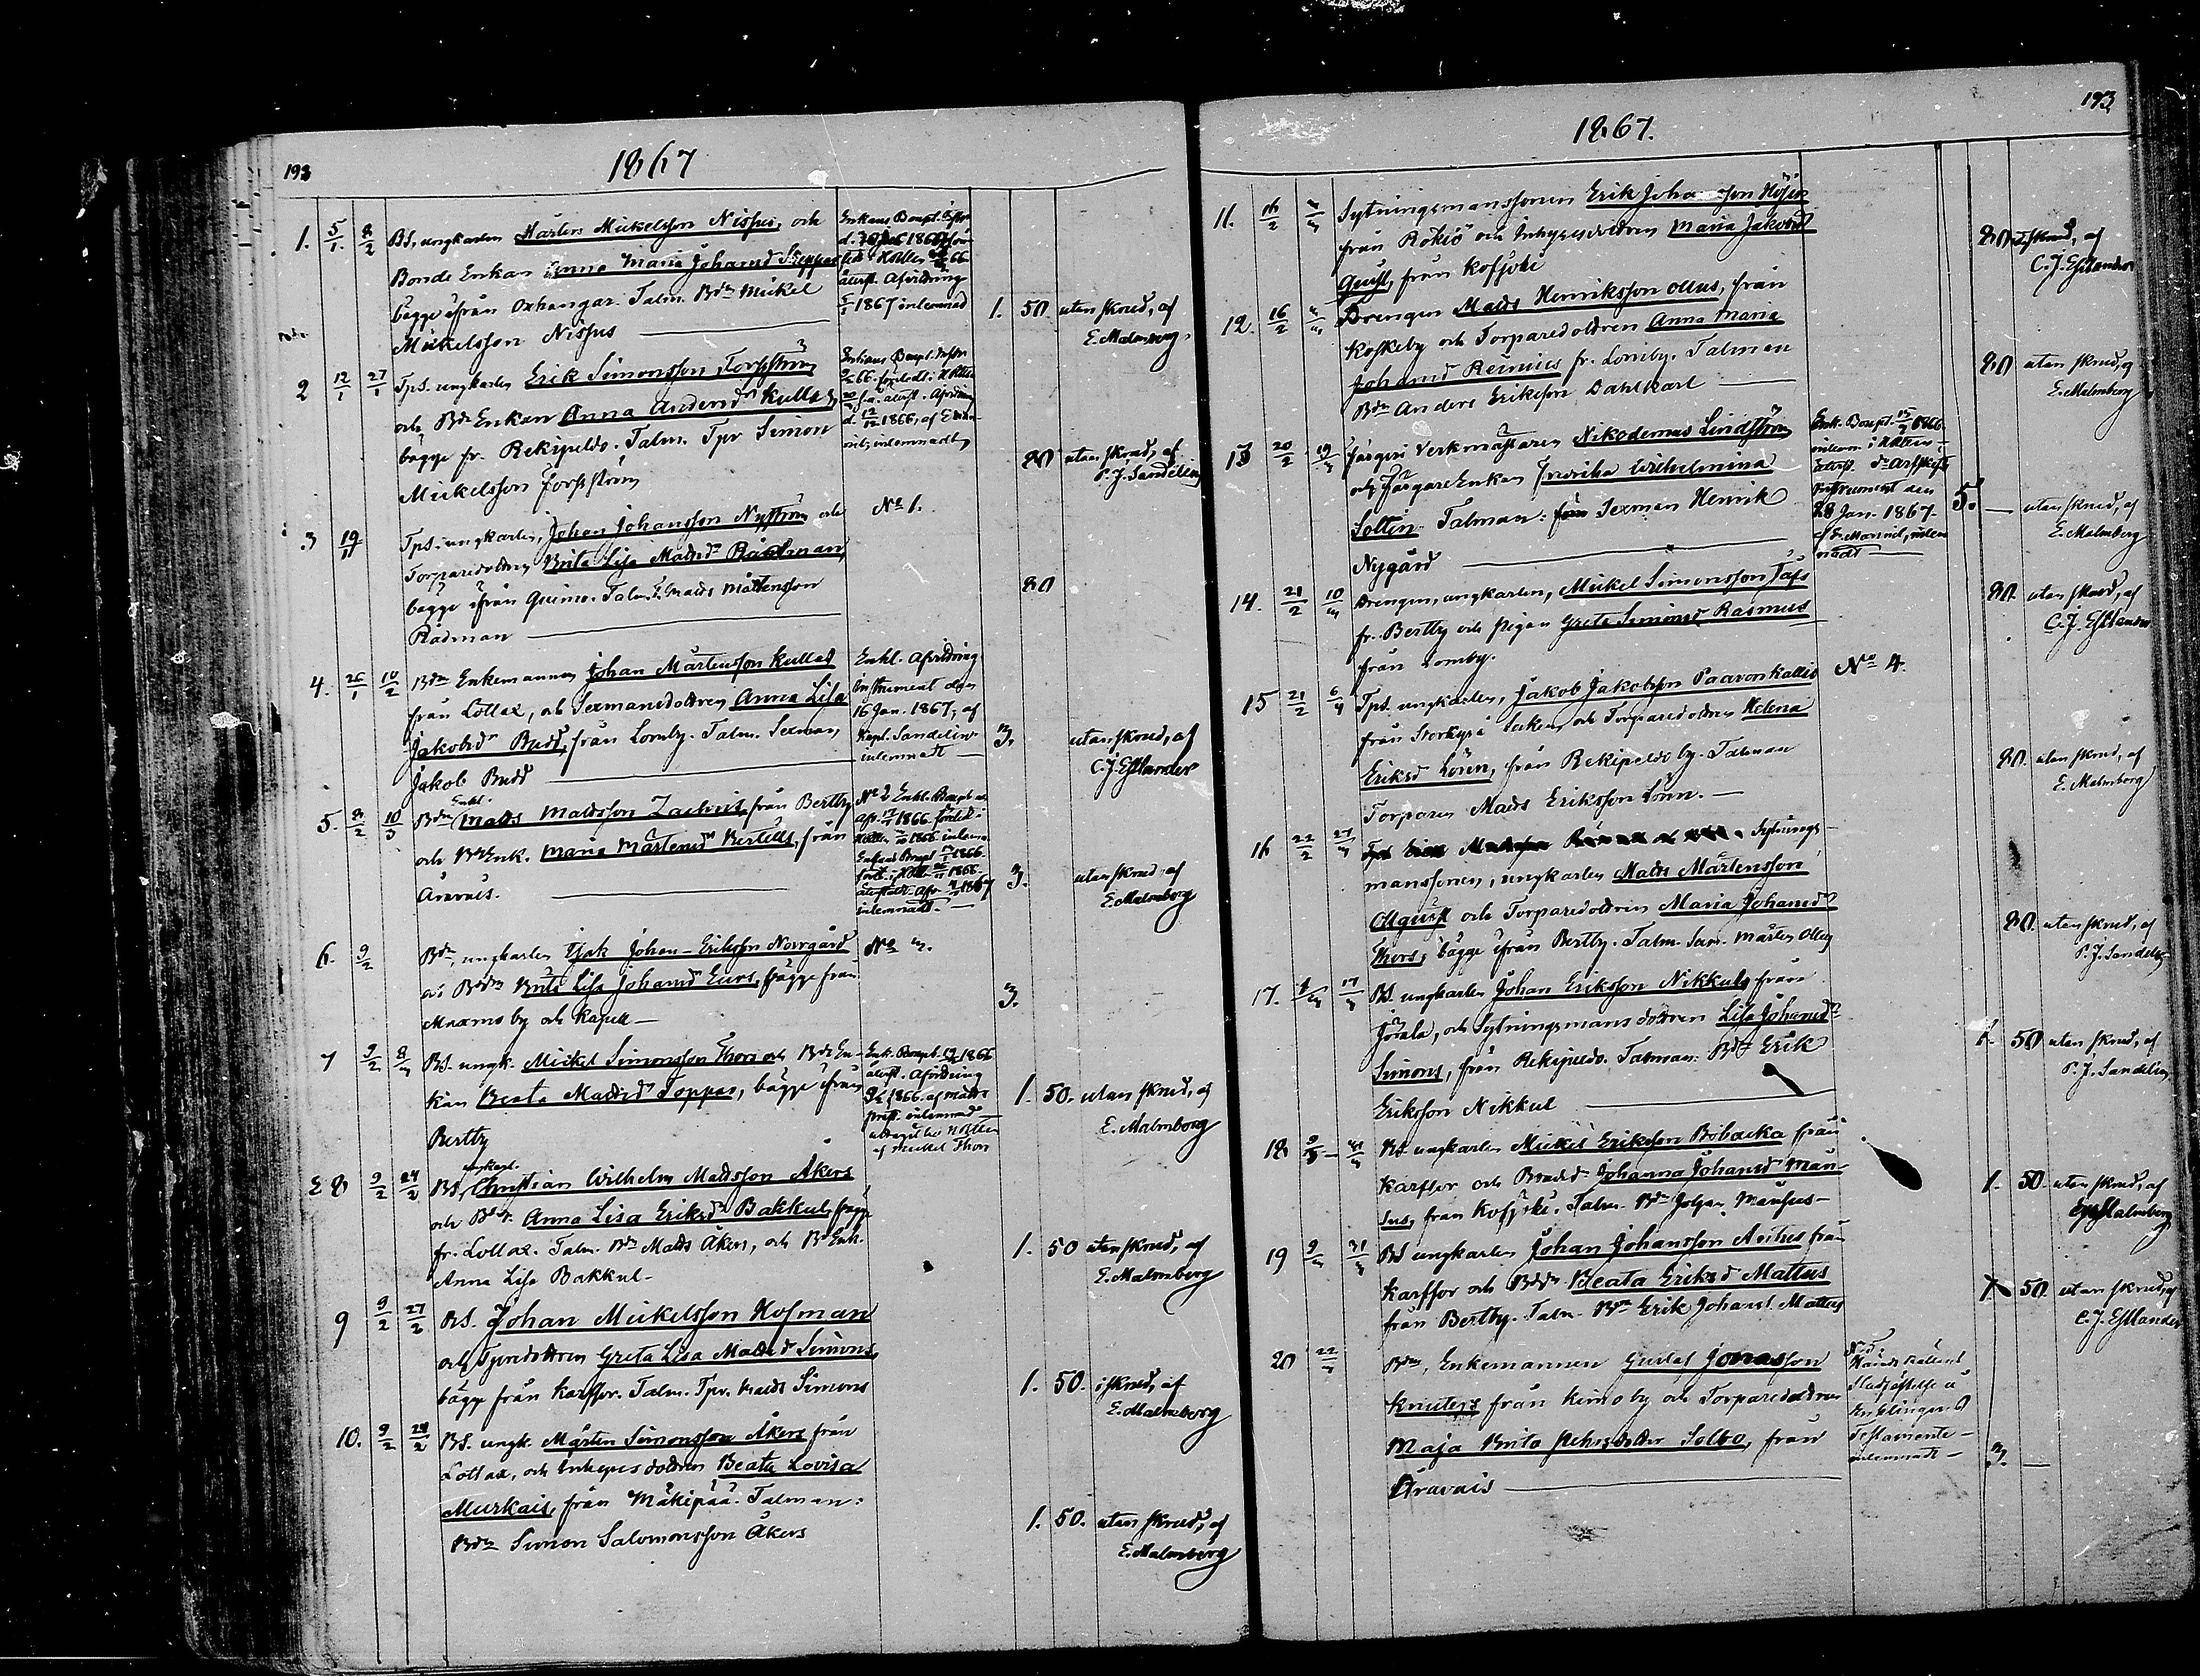 192
1867
1. 5/1 8/2 BS, ungkarlen Mårten Mickelsson Nissus, och
Bonde Enkan Anna Maria Johansd Skeppar
bägge ifrån Oxkangar. Talm. Bdn Mickel
Mickelsson Nissus
Enkans Boupt. Instr.
återst. Afvittring
5/1 1867 inlemnad
1. 50. utan skrud, af
E. Malmberg.
2 12/1 27/1 Tps. ungkarlen Erik Simonsson Forsström
och Bde Enkan Anna Andersdr Kullas,
bägge fr. Rekipeldo. Talm. Tpr Simon
Mickelsson Forsström
Enkans Boupt. Instr.
d. 12/12 1866, af
inlemnadt
80 utan skrud, af
P. J. Sandelin
3 19/1 Tps. ungkarlen, Johan Johansson Nyström och
Torparedottren Brita Lisa Mattsdr Rådman,
bägge ifrån Qvimo. Talm. Tr. Matts Mårtensson
Rådman
No 1.
80
4. 26/1 10/2 Bdn Enkemannen Johan Mårtensson Kullas
från Lottax, och Sexmansdottren Anna Lisa
Jakobsdr Budd, från Lomby. Talm. Sexman
Jakob Budd
Enkl. Afvittring
Instrument den
16 Jan. 1867, af
Kapl. Sandelin
inlemnadt
3. utan skrud, af
C. J. Estlander
5. 8/2 10/3 Bdn Enkl. Matts Mattsson Zachris, från Bertby
och Bde Enk. Maria Mårtensdr Bertills, från
Oravais.
No 2 Enkl. Boupt
1866
1866 inlemn.
Enkans Boupt 1866
1866
1867
inlemnadt.
3. utan skrud af
E. Malmberg
6. 9/2 Bdn, ungkarlen Isak Johan Eriksson Norrgård
och Brita Lisa Johansd Eurs, bägge från
Maxmo by och kapell
No 3.
3.
7 9/2 8/3 BS. ungk. Mickel Simonsson Thors och Bde En-
kan Beata Mattsdr Toppar, bägge ifrån
Bertby
Enk. Boupt. 1866
återst. Afvittring
1866. af Matts
inlemnad
af Mickel Thors
1. 50. utan skrud, af
E. Malmberg
8 9/2 24/2 BS, ungkarl. Christian Wilhelm Mattsson Åkers
och Anna Lisa Eriksdr Bakkul, bägge
fr. Lottax. Talm. Bdn Matts Åkers, och Bd Enk.
Anna Lisa Bakkul
1. 50 utan skrud, af
E. Malmberg
9 9/2 27/2 BS. Johan Mickelsson Hofman
och Tpredottren Greta Lisa Mattsd Simons,
bägge från Karfsor. Talm. Tpr. Matts Simons
1. 50. i skrud, af
E. Malmberg
10. 9/2 28/2 BS. ungk. Mårten Simonsson Åkers från
Lottax, och Inhyses dottren Beata Lovisa
Murkais, från Mäkipää. Talman:
Bdn Simon Salomonsson Åkers
1. 50. utan skrud, af
E. Malmberg
193
1867.
11. 16/2 Sytningsmanssonen Erik Johansson Höjer
från Rökiö och Inhysesdottren Maria Jakobsd
Qust, från Kosjoki
80 i skrud, af
C. J. Estlander
12. 16/2 Drengen Matts Henriksson Ollus, från
Koskeby och Torparedottren Anna Maria
Johansd Reinius fr. Lomby. Talman
Bdn Anders Eriksson Dahlkarl
80 utan skrud, af
E. Malmberg
13 20/2 19/3 Färgeri Verkmästaren Nikodemus Lindström
och Färgare Enkan Fredrika Wilhelmina
Soltin. Talman: Sexman Henrik
Nygård
Enk. Boupt. 1866
instrument den
28 Jan. 1867.
5. — utan skrud, af
E. Malmberg
14. 21/2 10/3 Drengen, ungkarlen, Mickel Simonsson Tåfs
fr. Bertby och pigan Greta Simonsd Rasmus
från Lomby.
80. utan skrud, af
C. J. Estlander
15 21/2 6/4 Tps. ungkarlen, Jakob Jakobsson Paavonkallio
från Storkyro Socken, och Torparedottren Helena
Eriksd Lönn, från Rekipeldo by. Talman
Torparen Matts Eriksson Lönn.
No 4.
80. utan skrud, af
E. Malmberg
16 22/2 27/3 Sytnings-
manssonen, ungkarlen Matts Mårtensson
Ollqust och Torparedottren Maria Johansdr
Thors, bägge ifrån Bertby. Talm. Sexm. Mårten Ollq
80. utan skrud, af
P. J. Sandelin
17. 17/3 BS. ungkarlen Johan Eriksson Nikkul, från
Jörala, och Sytningsmans dottren Lisa Johansdr
Simons, från Rekipeldo. Talman: Bdn Erik
Eriksson Nikkul
1. 50 utan skrud, af
P. J. Sandelin
18 BS ungkarlen Mickel Eriksson Bobacka från
Karfsor och Johanna Johansdr Mau-
sus, från Kosjoki. Talm. Bdn Johan Mausus
1. 50. utan skrud, af
E. Malmberg
19 9/3 31/3 BS ungkarlen Johan Johansson Avitus från
Karfsor och Beata Eriksd Mattus
från Bertby. Talm. Bdn Erik Johansf. Mattus
1. 50. utan skrud, af
C. J. Estlander
20 22/3 Bdn, Enkemannen Gustaf Jonasson
Knuters från Kimo by och Torparedottren
Maja Brita Pehrsdotter Solbo, från
Oravais
No 5.
Testamente
inlemnadt
3. —